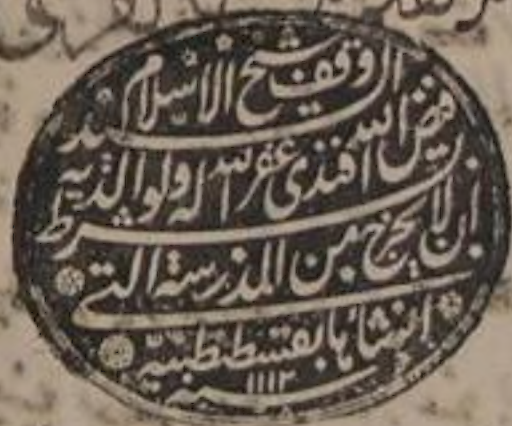 وقف شيخ الاسلام
السيد فيض الله افندى غفر الله له ولوالديه
بشرط ان لا يخرج من المدرسة التى
انشاها بقسطنطينية
سنه ١١١٢